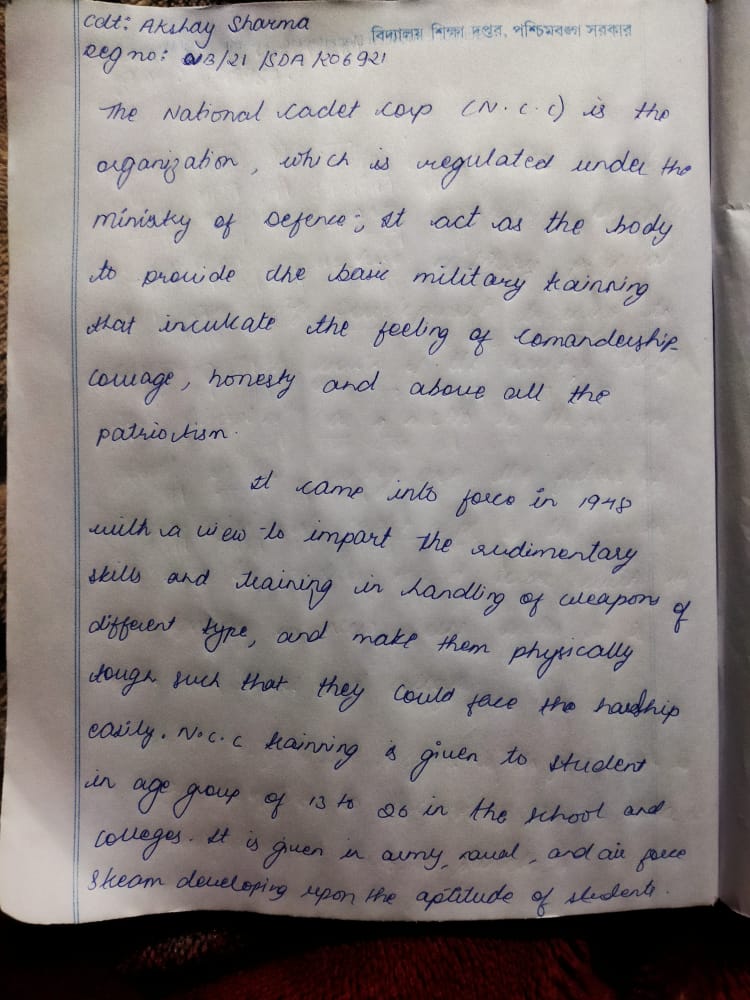 cdt: Akshay Sharma
বিদ্যালয় শিক্ষা দপ্তর, পশ্চিমবঙ্গ সরকার
Reg no: WB/21/SDA/K06921
The National Cadet Corp (N.C.C) is the
organization, which is regulated under the
ministry of Defence; It act as the body
to provide the basic military trainning
that inculcate the feeling of Comandership
courage, honesty and above all the
patriotism.
It came into force in 1948
with a view to impart the rudimentary
skills and training in handling of weapons of
different type, and make them physically
tough such that they could face the hardship
easily. N.C.C trainning is given to student
in age group of 13 to 26 in the school and
colleges. It is given in army, naval, and air force
Steam developing upon the aptitude of students.